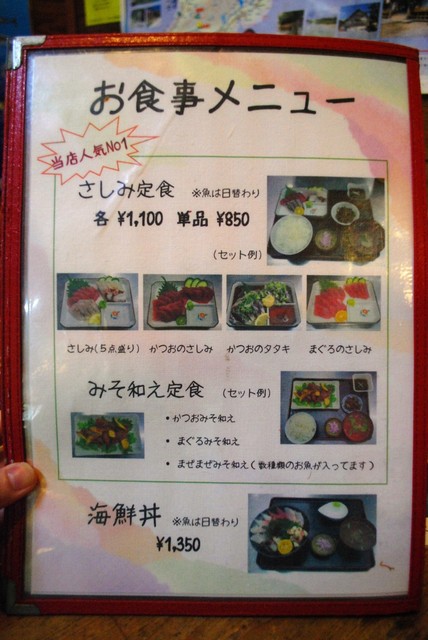 お食事メニュー
当店人気No1
さしみ定食 ※魚は日替わり
各 ¥1,100 単品 ¥850
(セット例)
さしみ(5点盛り) かつおのさしみ かつおのタタキ まぐろのさしみ
みそ和え定食 (セット例)
・かつおみそ和え
・まぐろみそ和え
・まぜまぜみそ和え(数種類のお魚が入ってます)
海鮮丼 ※魚は日替わり
¥1,350